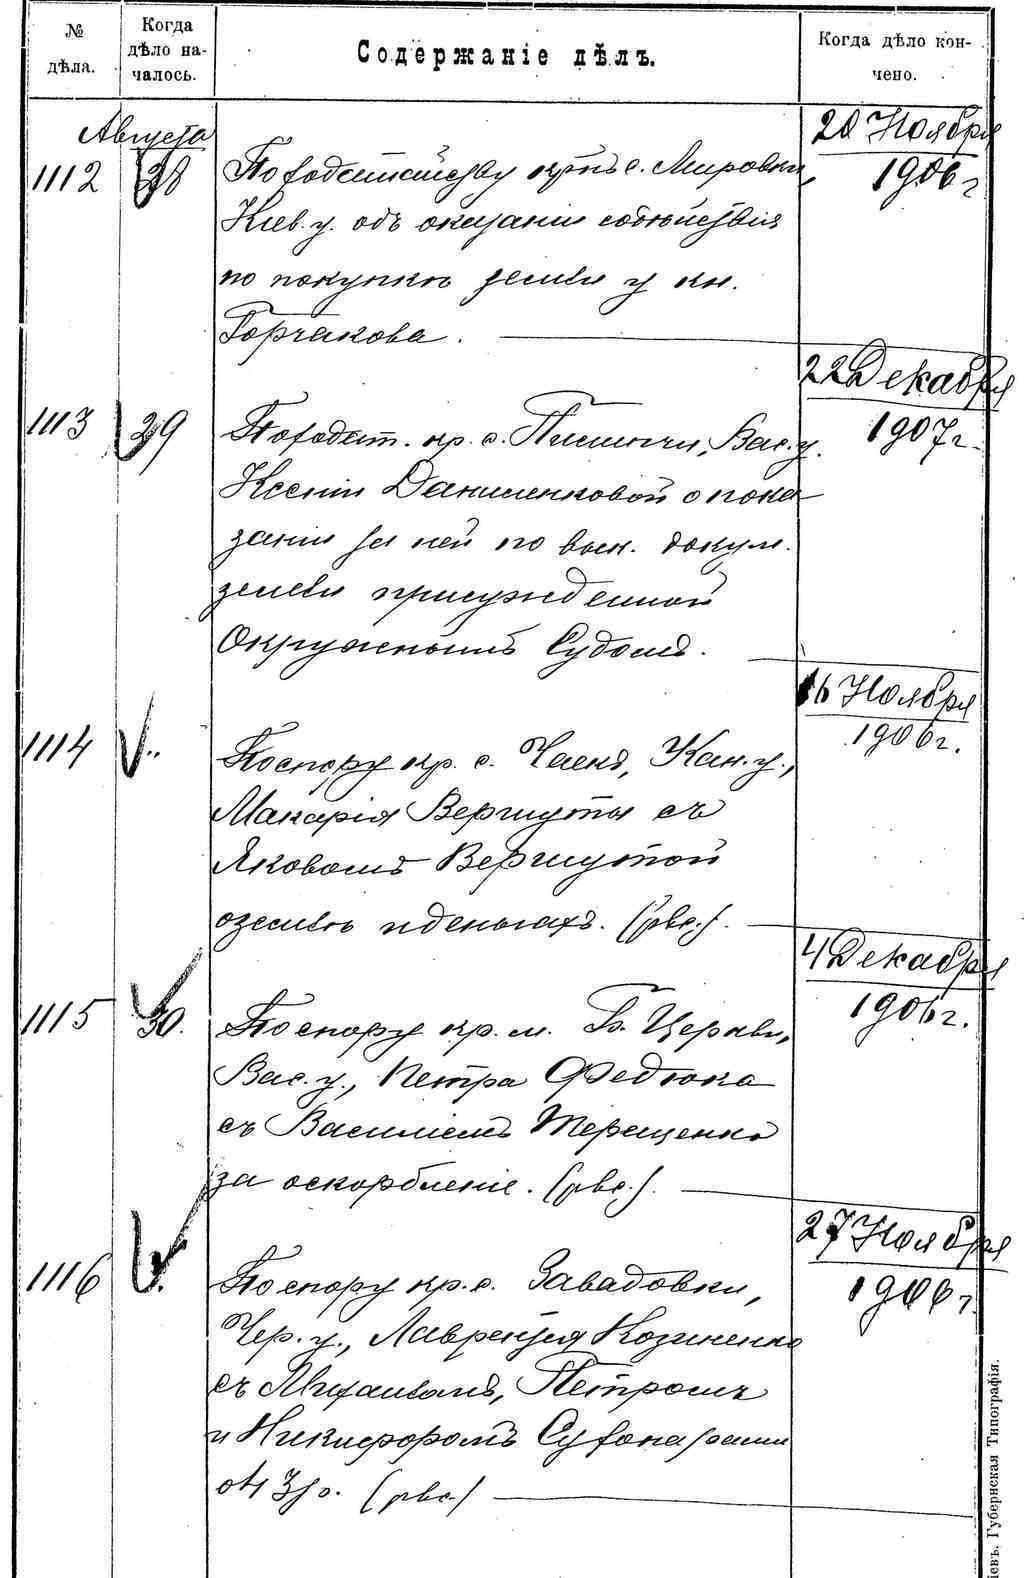 № дѣла.
Когда дѣло началось.
Содержаніе дѣлъ.
Когда дѣло кончено.
Августа
1112 28
По ходатайству кр-нъ с. Мировки,
Кіев. у. объ оказаніи содѣйствія
по покупкѣ земли у кн.
Горчакова.
20 Ноября
1906 г
1113 29
По ходат. кр. с. Пищиковъ, Вас. у.
Ксеніи Даниленковой о пока
заніи за ней по вык. докум.
земли присужденной
Окружнымъ Судомъ.
22 Декабря
1907 г.
1114 "
По спору кр. с. Чаекъ, Кан. у.,
Макарія Вергуты съ
Яковомъ Вергутой
о землѣ и деньгахъ. (рвс.).
16 Ноября
1906 г.
1115 30.
По спору кр. м. Б. Церкви,
Вас. у., Петра Федюка
съ Василіемъ Терещенко
за оскорбленіе. (рвс.).
4 Декабря
1906 г.
1116
По спору кр. с. Завадовки,
Чер. у., Лаврентія Козиненко
съ Михаиломъ, Петромъ
и Никифоромъ Сухонарами
(рвс.)
27 Ноября
1906 г.
Губернская Типографія.